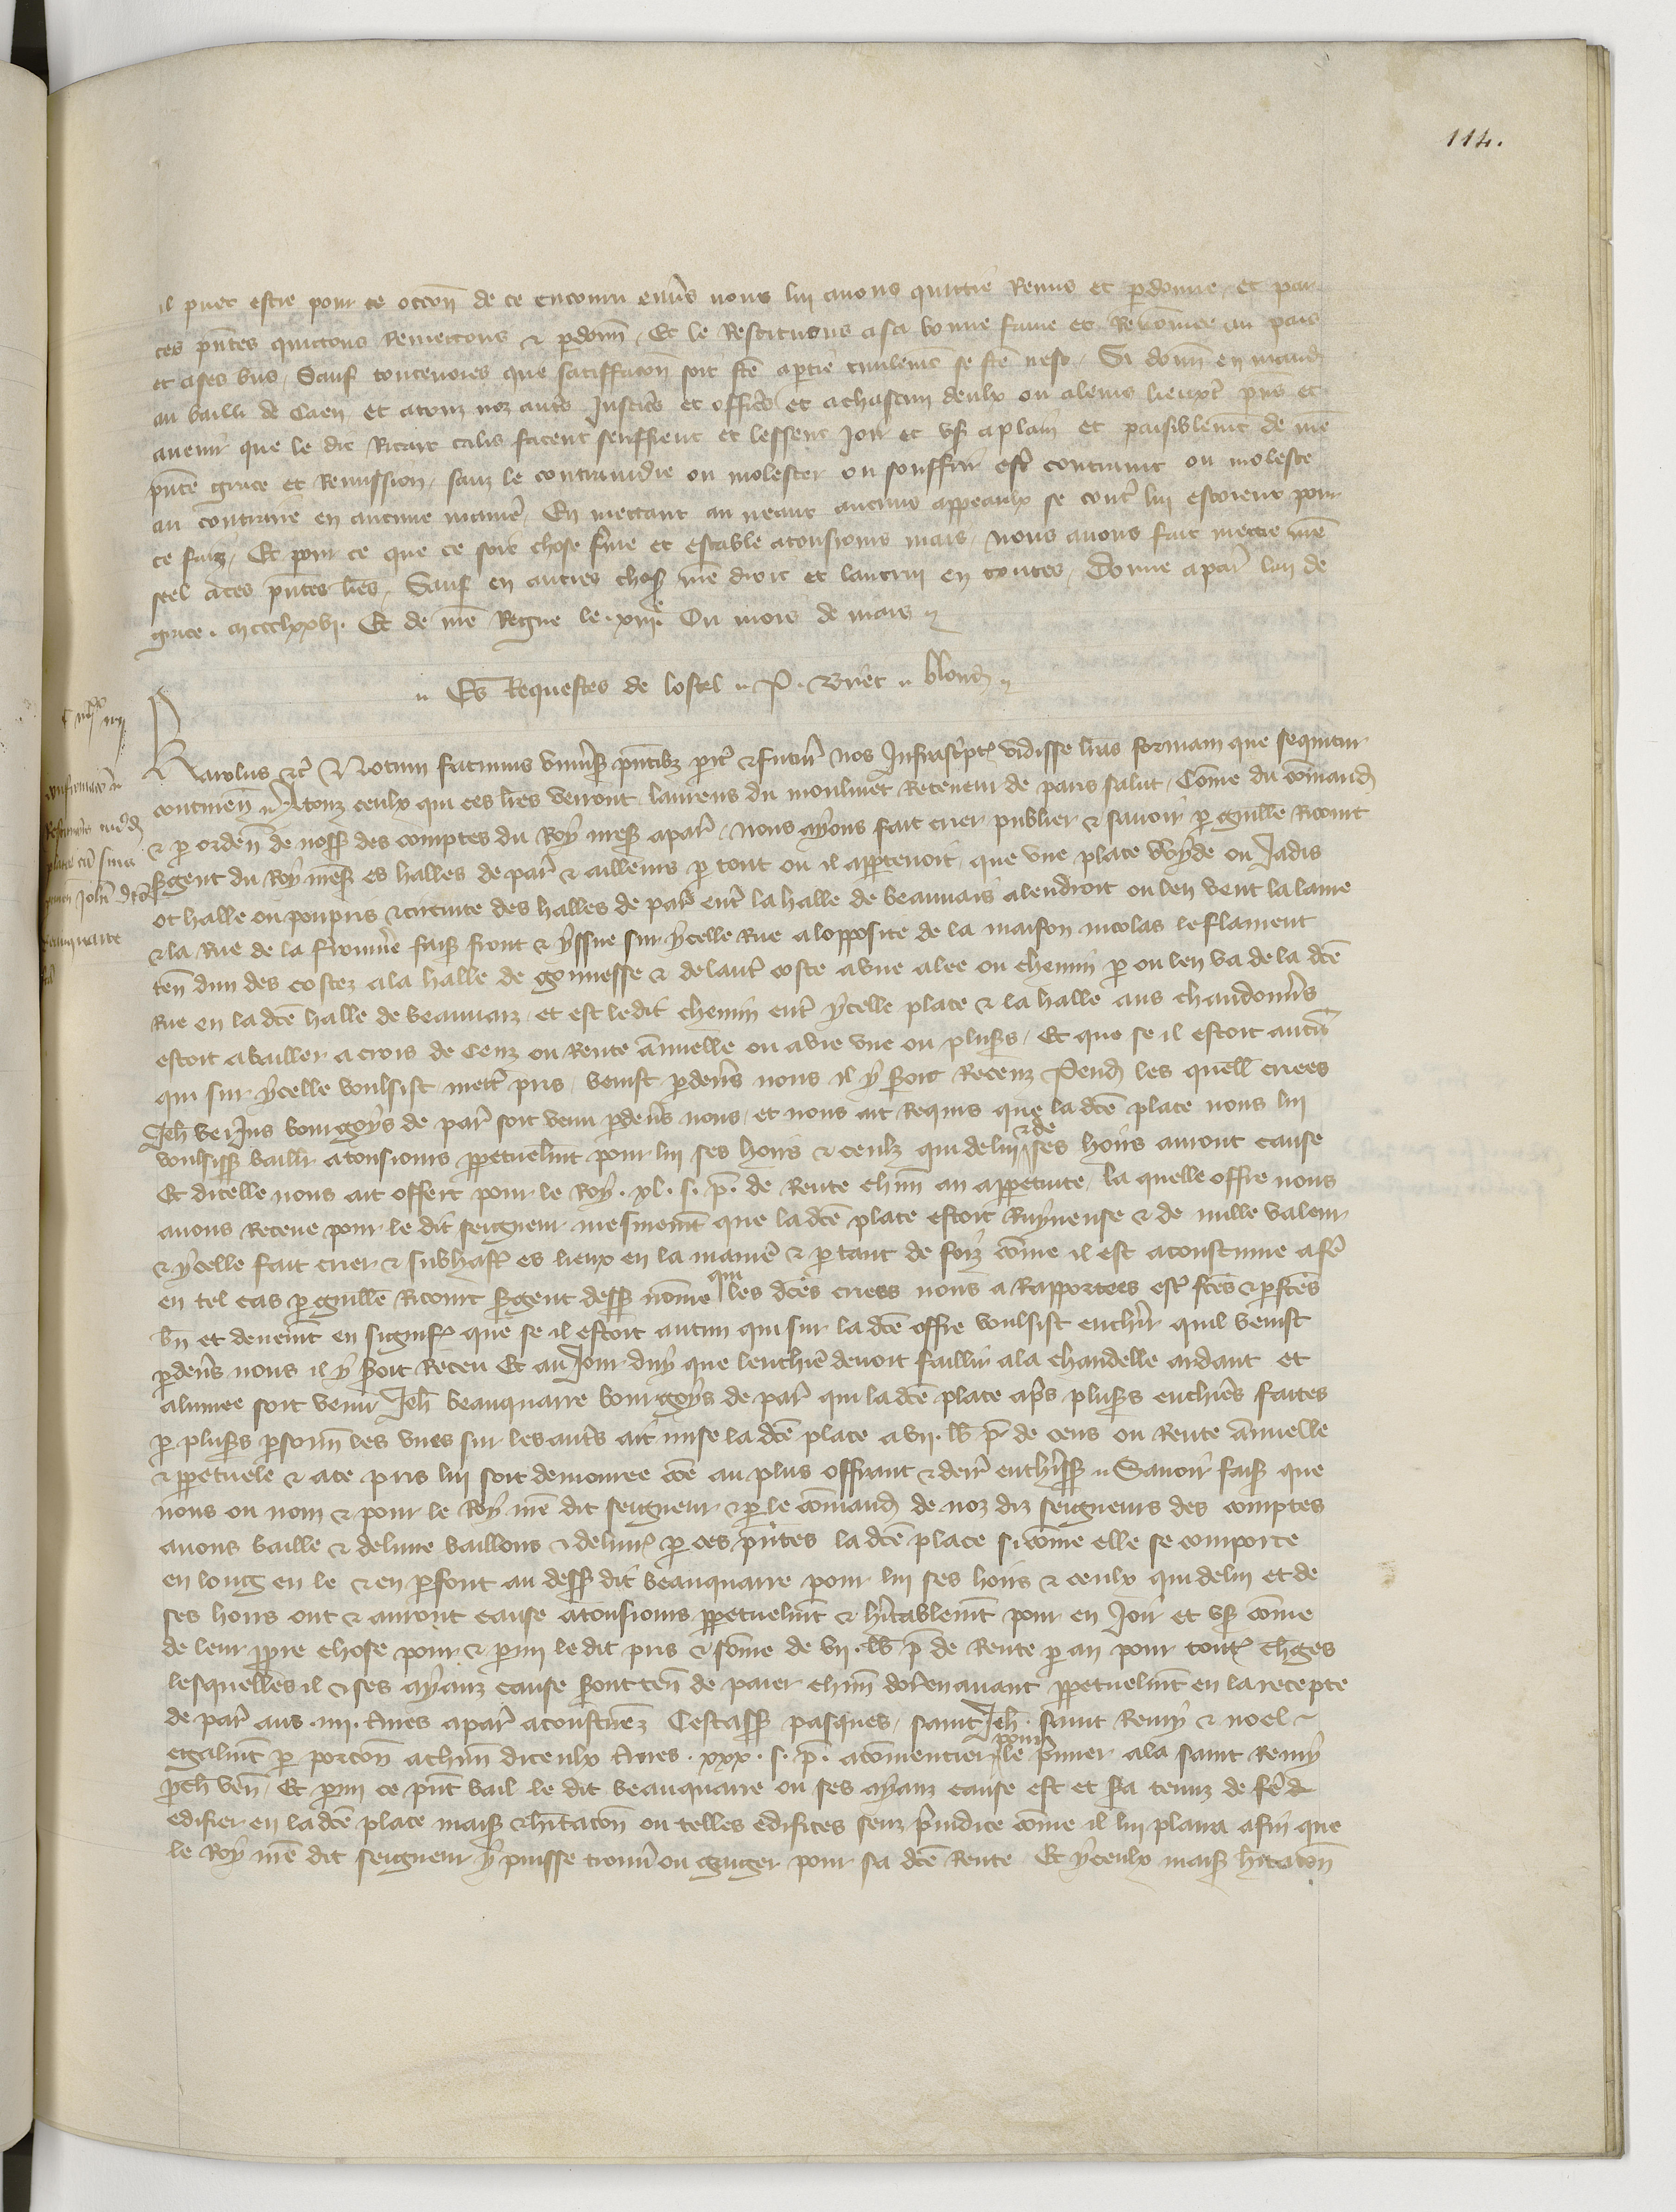 114.
il puet estre pour ce occōn de ce encouru envs nous lui avons quittie Remis et pdonne, et par
ces pn̄tes quittons Remettons & pdonn̄, Et le Restituons a sa bonne fame et Renōmee au pais
et a ses biens, Sauf toutevoies que satiffacōn soit fte a ptie civilemt se fte nest, Si donn̄ en mand
au bailli de Caen et a touz noz autres Justic̄ et offic̄ et a chascun deulx ou a leurs lieuxt pns et
avenir que le dit Ricart calis facent seuffrent et lessent Joir et us a plain et paisiblemt de nre
pn̄te grace et Remission, sanz le contraindre ou molester ou souffrir estre contraint ou moleste
au contraire en aucune manie, En mettant au neant aucuns appeaulx se contre lui estoient pour
ce faiz, Et pour ce que ce soit chose ferme et estable a tousiours mais, nous avons fait mettre nre
seel a ces pn̄tes lres, Sauf en autres chos nre droit et lautrui en toutes, Donne a par lan de
grace. mccclxxvi. Et de nre Regne le .xiii.e Ou mois de mars
Es Requestes de lostel P. Briet blond
Karolus &c Notum facimus univs pn̄tibz pit & futur nos Infrascptas vidisse lras formam que sequitur
continen̄ A touz ceulx qui ces lres verront laurens du moulinet Receveur de paris salut, Cōme du cōmand
& p orden̄ de noss des comptes du Roy nress a par, nous ayons fait crier publier & savoir p guille Ricout
sgent du Roy nress es halles de par & ailleurs p tout ou il appartenoit, que une place wyde ou Jadis
ot halle ou pourpris & circuite des halles de par entre la halle de beauvais a lendroit ou len vent la laine
& la Rue de la fromie fais front & yssue sur ycelle Rue a lopposite de la maison nicolas le flament
ten̄ dun des costez a la halle de gonnesse & de lautre coste a une alee ou chemin p ou len va de la dce
Rue en la dce halle de beauvaiz, et est ledit chemin entre ycelle place & la halle aus chaudonn̄s
estoit a bailler a crois de cenz ou Rente ānnuelle ou a vie une ou plusrs, Et que se il estoit aucun
qui sur ycelle voulsist mettre pris, venist pdevs nous il y soit Recenz Pend les quell criees
Jeh verJus bourgoys de par soit venu pdevs nous, et nous ait Requis que la dce place nous lui
voulsiss bailler a tousiours ppetuelmt pour lui ses hoirs & ceulz qui de lui & de ses hoirs auront cause
Et dicelle nous ait offert pour le Roy .xl. s. p. de Rente chun̄ an a ppetuite, la quelle offre nous
avons Receue pour le dit seigneur mesmemt que la dce place estoit Ruyneuse & de nulle valeur
& ycelle fait crier & subhast es lieux en la manie & p tant de foiz cōme il est acoustume a fe
en tel cas p guille Ricout sgent dess nōme qui les dces criees nous a Rapportees est ftes & pfces
bn̄ et deuemt en signif que se il estoit aucun qui sur la dce offre voulsist encherir quil venist
pdevs nous il y soit Receu Et au Jour duy que lenchie devoit faillir a la chandelle ardant et
alumee soit venu Jeh beauquaire bourgoys de par qui la dce place aps plusrs enchies faites
p plusrs personn̄ les unes sur les autres ait mise la dce place a vii. lb. p. de cens ou Rente ānnuelle
& ppetuele & a ce pris lui soit demouree cōe au plus offrant & derr encheriss Savoir fais que
nous ou nom & pour le Roy nre dit seigneur & p le cōmand de noz diz seigneurs des comptes
avons baille & delivre baillons & deliv p ces pn̄tes la dce place si cōme elle se comporte
en long en le & en pfont au dess dit beauquaire pour lui ses hoirs & ceulx qui de lui et de
ses hoirs ont & auront cause a tousiours ppetuelmt & hitablemt pour en Joir et us cōme
de leur ppre chose pour & pmi ledit pris & sōme de vii. lb. p de Rente p an pour tout chges
lesquelles il & ses ayanz cause sont ten̄ de paier chun̄ dorenavant ppetuelmt en la recepte
de par aus .iiii. tmes a par acoustumez Cestass pasques, saint Jeh. saint Remy & noel
egalmt p porcōn a chun̄ diceulx tmes .xxx. s. p. a cōmencier pour le pmier a la saint Remy
pch ven̄. Et pmi ce pn̄t bail le dit beauquaire ou ses ayanz cause est et sa tenuz de fe &
edifier en la dce place mais & hitacōn ou telles edifices senz prudice cōme il lui plaira afin que
le Roy nre dit seigneur y puisse trouv ou gaiger pour sa dce Rente Et yceulx mais hitacōn